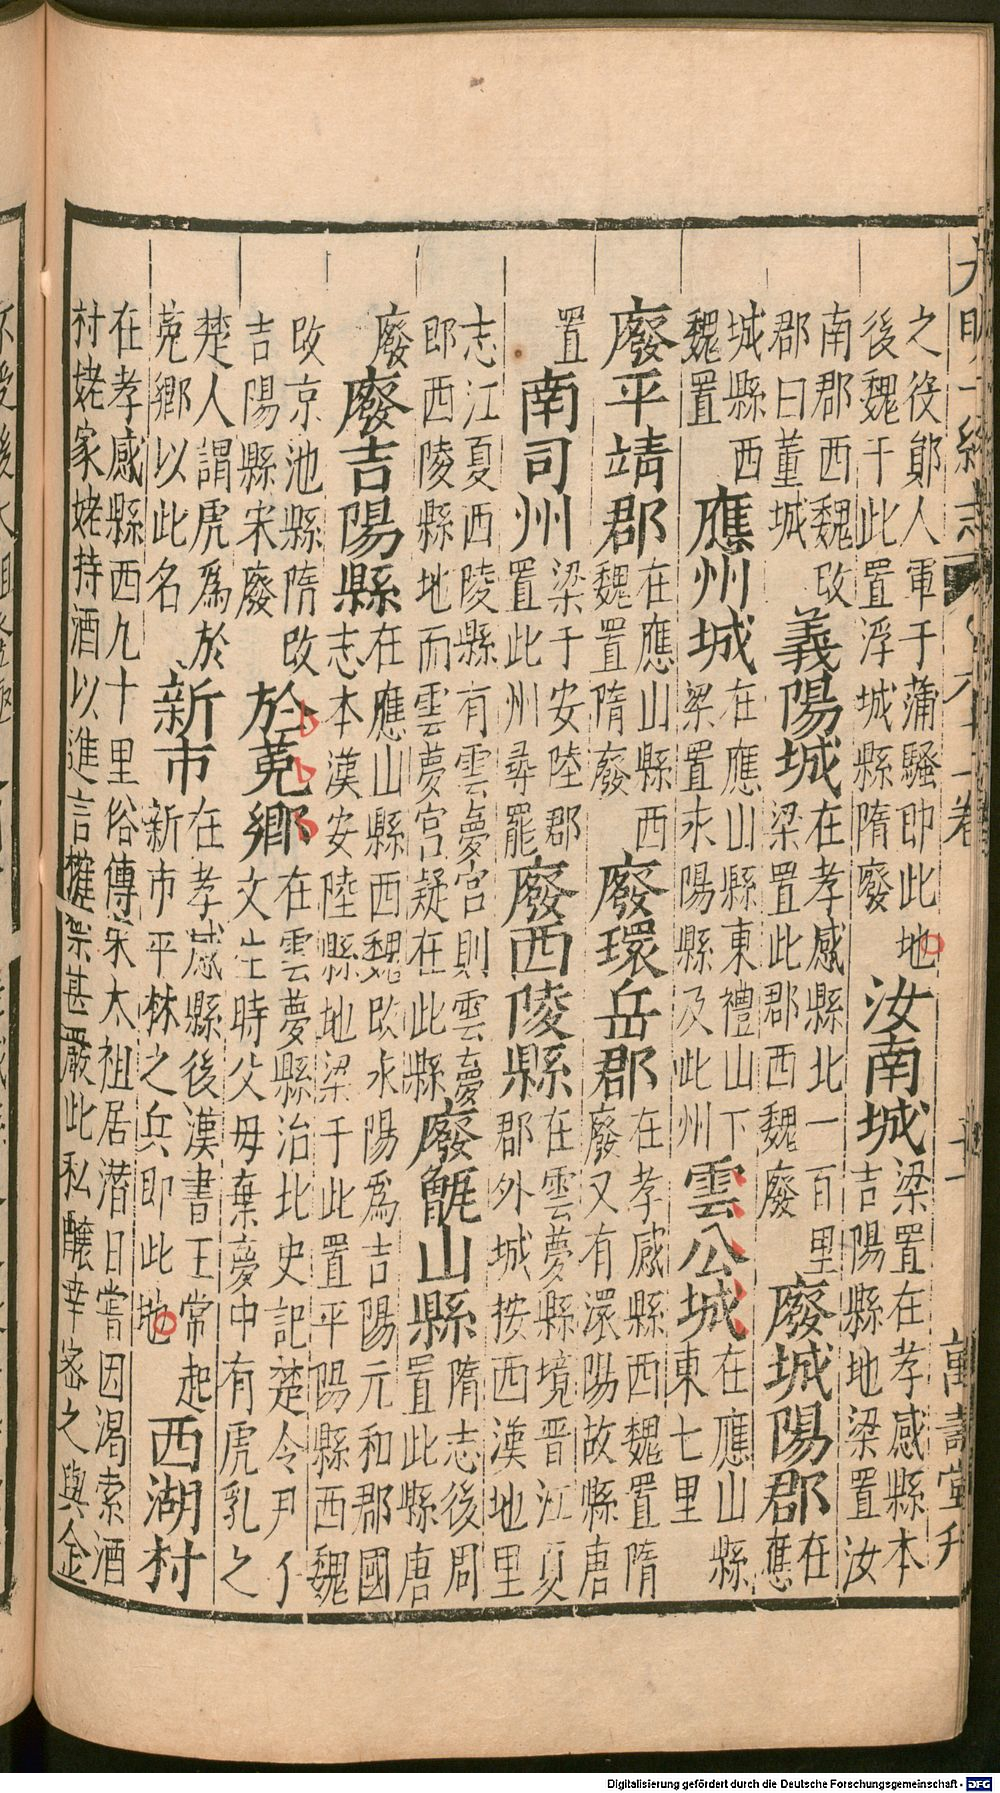 大明一統志 六十一卷 十一 萬壽堂刊
之役鄖人軍于蒲騷即此地
後魏于此置浮城縣隋廢
汝南城
梁置在孝感縣本
吉陽縣地梁置汝
南郡西魏改
郡曰董城
義陽城
在孝感縣北一百里
梁置此郡西魏廢
廢城陽郡
在
應
城縣西
魏置
應州城
在應山縣東禮山下
梁置永陽縣及此州
雲公城
在應山縣
東七里
廢平靖郡
在應山縣西
魏置隋廢
廢環岳郡
在孝感縣西魏置隋
廢又有澴陽故縣唐
置
南司州
梁于安陸郡
置此州尋罷
廢西陵縣
在雲夢縣境晉江夏
郡外城按西漢地里
志江夏西陵縣有雲夢宮則雲夢
郎西陵縣地而雲夢宮疑在此縣
廢甑山縣
隋志後周
置此縣唐
廢
廢吉陽縣
在應山縣西魏改永陽爲吉陽元和郡國
志本漢安陸縣地梁于此置平陽縣西魏
改京池縣隋改
吉陽縣宋廢
於菟鄉
在雲夢縣治北史記楚令尹
文生時父毋棄夢中有虎乳之
楚人謂虎爲於
菟鄉以此名
新市
在孝感縣後漢書王常起
新市平林之兵即此地
西湖村
在孝感縣西九十里俗傳宋太祖居潛日嘗因渴索酒
村姥家姥持酒以進言榷禁甚嚴此私釀幸密之與金
Digitalisierung gefördert durch die Deutsche Forschungsgemeinschaft - DFG